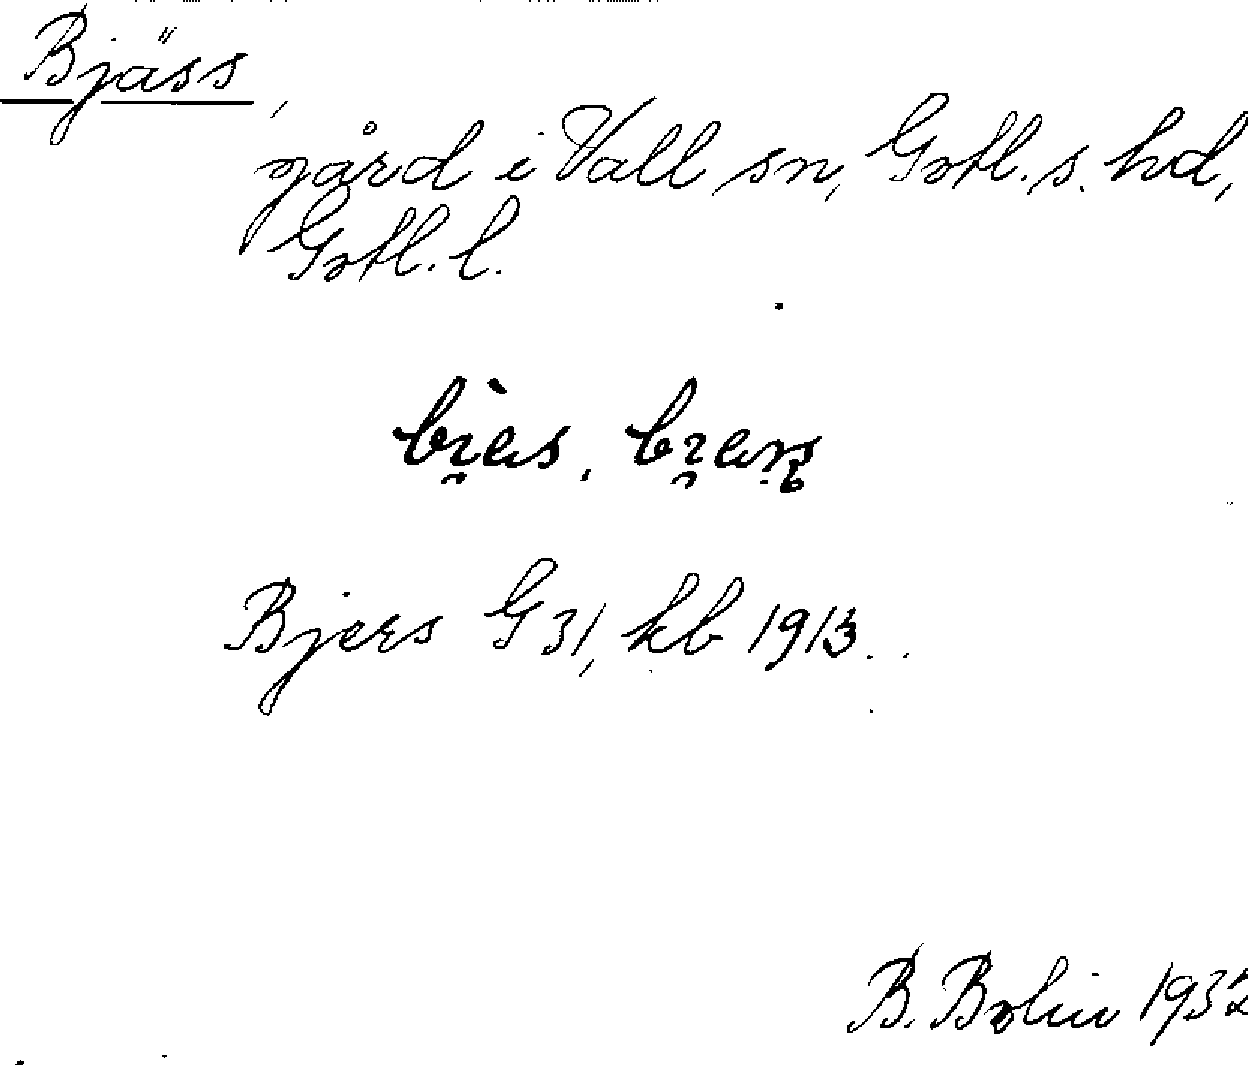 Bjäss,
gård i Vall sn, Gotl. s. hd,
Gotl. l.
Bjers G 31, kb 1913.
B. Bolin 1932